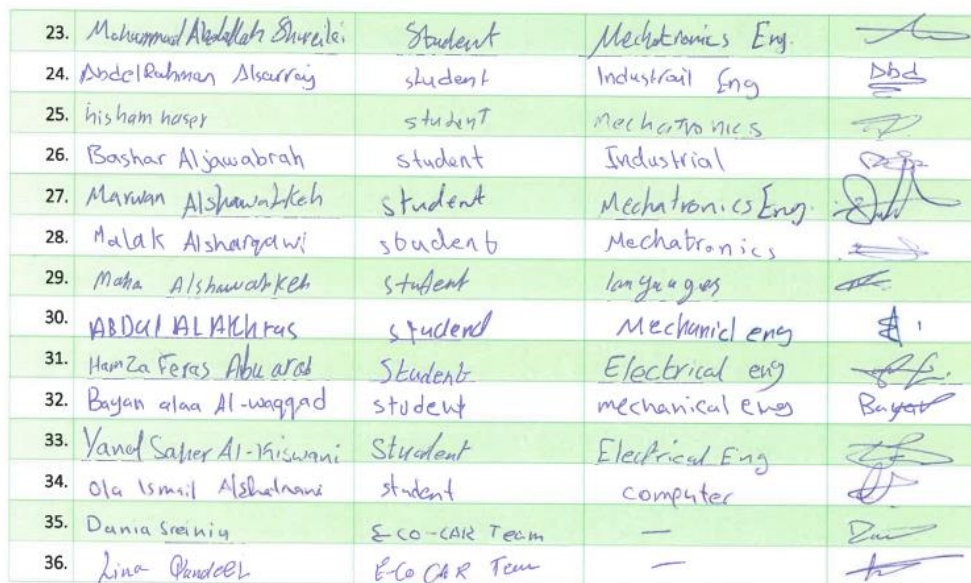 23. Mohammad Abdallah Shreilei Student Mechatronics Eng.
24. AbdelRahman Alsarraj student Industrail Eng Dbd
25. hisham naser student mechatronics
26. Bashar Aljawabrah student Industrial
27. Marwan Alshawabkeh student Mechatronics Eng.
28. Malak Alsharqawi student Mechatronics
29. Maha Alshawabkeh student languages
30. ABDUl ALAKhras studend Mechanicl eng
31. HamZa Feras Abu arab Student Electrical eng
32. Bayan alaa Al-waqqad student mechanical eng Bayan
33. Yanal Saher Al-Kiswani Student Electrical Eng
34. Ola Ismail student computer
35. Dania E-CO-CAR Team —
36. Lina Qandeel E-Co CAR Team —